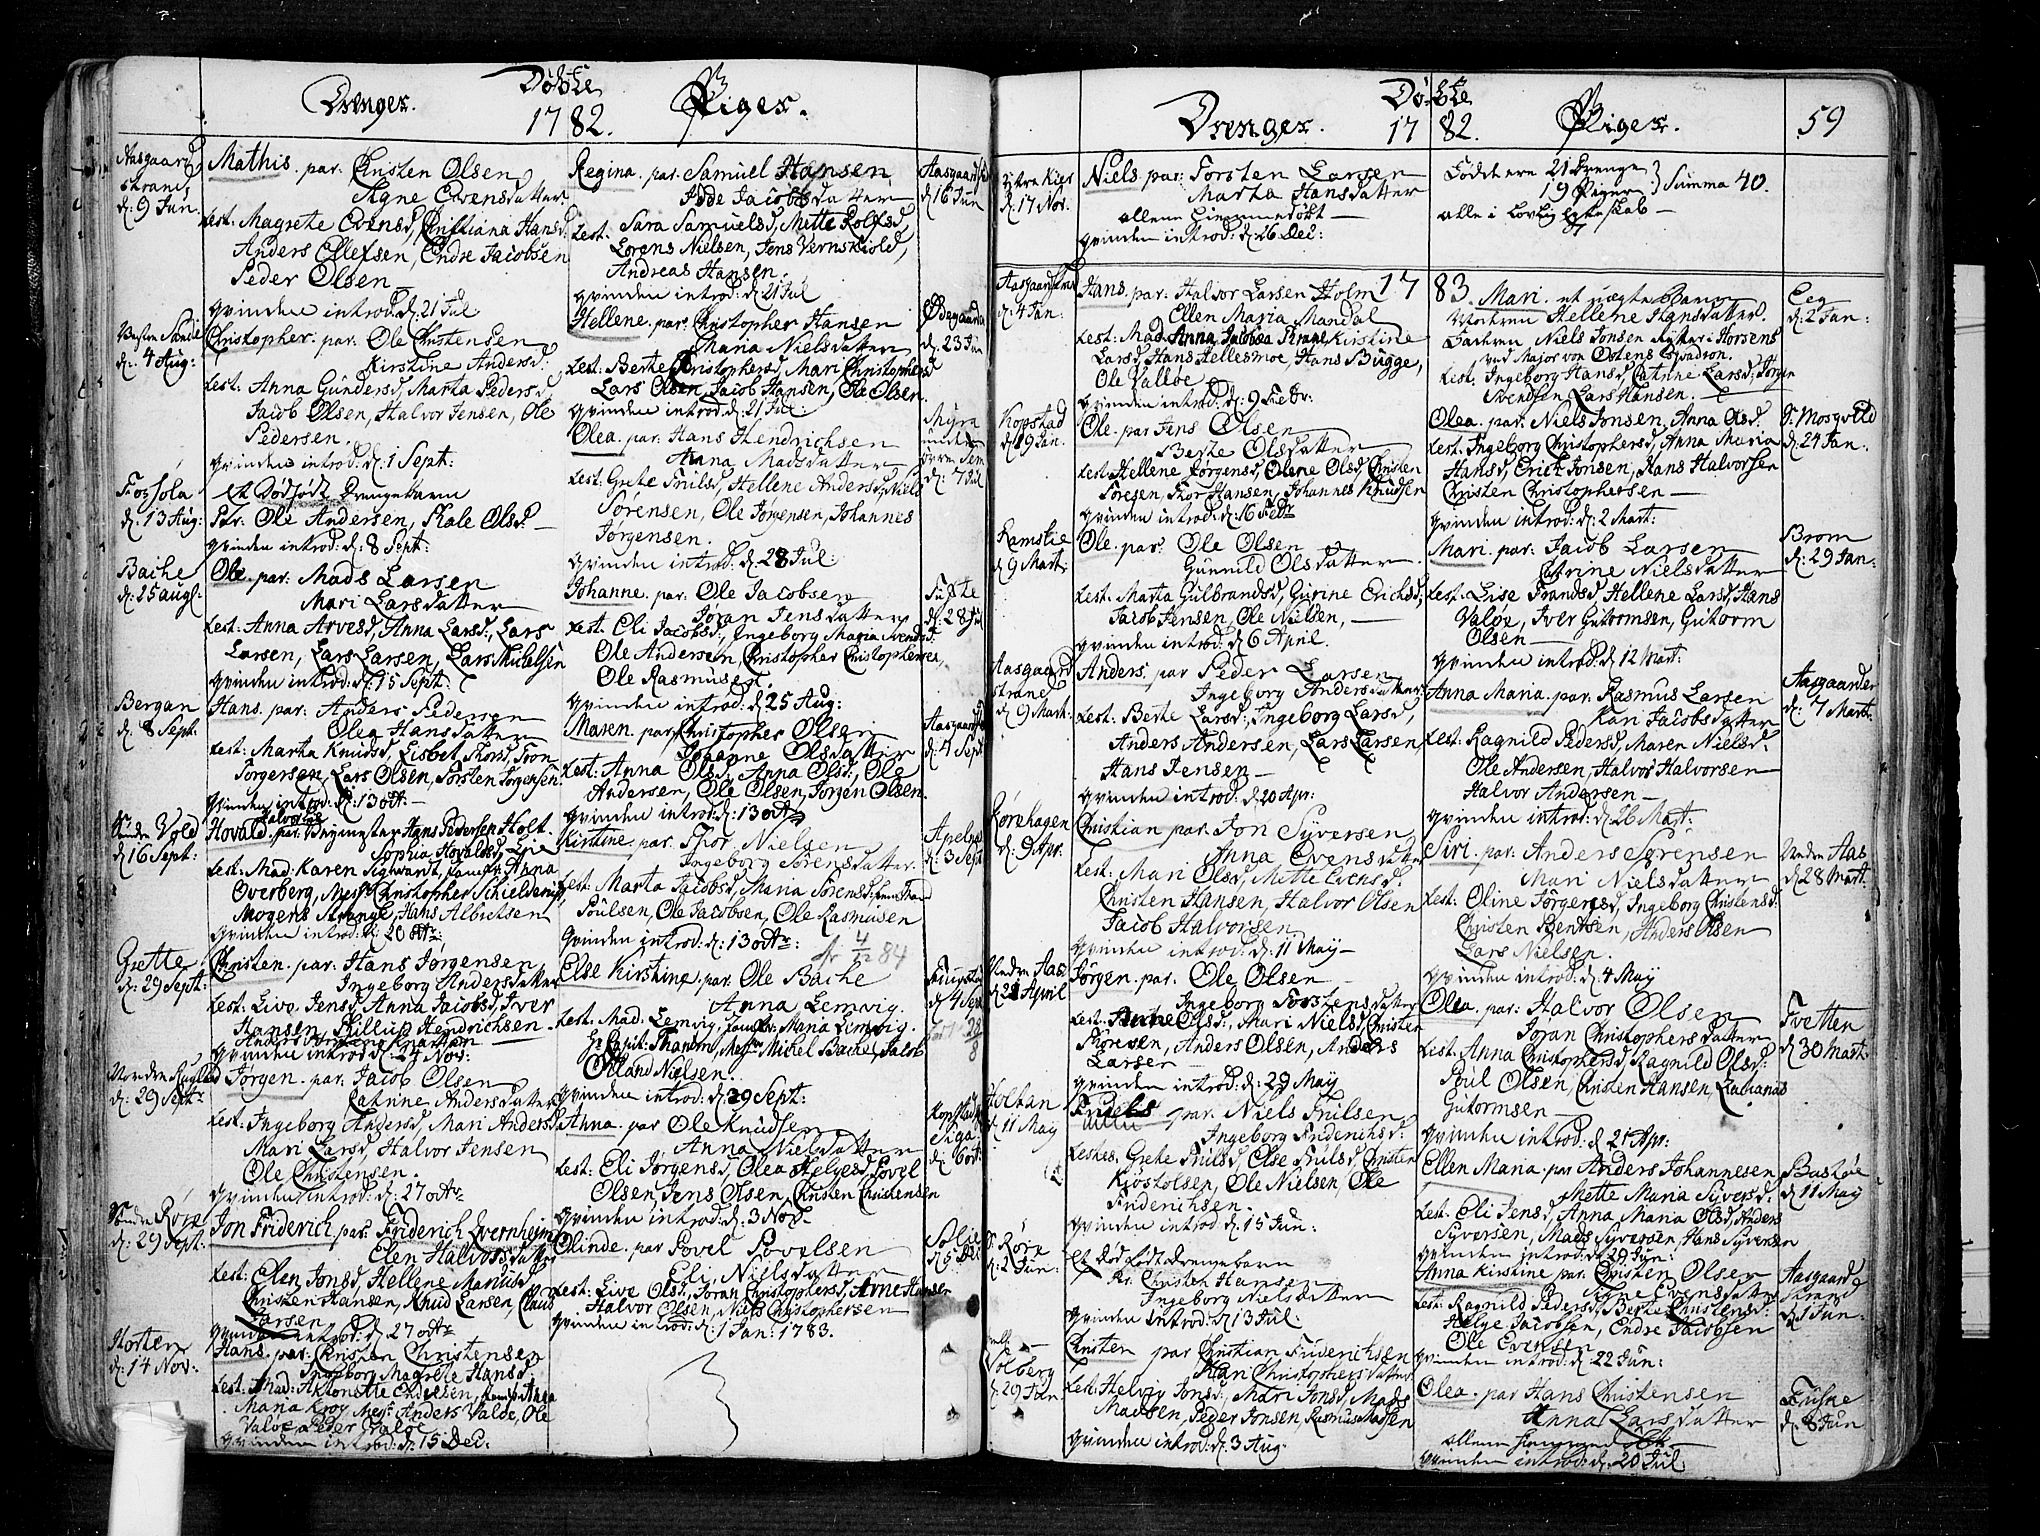 Døbte
Drenger. 1782. Piger.
Aasgaard
strand
d: 9 Jun.
Mathis. par. Christen Olsen
Signe Evensdatter
test. Magrete Evensd, Christiana Hansd.
Anders Ellefsen, Endre Jacobsen
Peder Olsen
qvinden introd: d: 21 Jul
d: 4 Aug:
Christopher. par. Ole Christensen
Kirstine Andersd.
test. Anna Gundersd, Marta Pedersd,
Jacob Olsen, Halvor Jensen, Ole
Pedersen.
qvinden introd: d: 1 Sept:
d: 13 Aug:
et dødfødt Drengebarn
Par. Ole Andersen, Kale Olsd.
qvinden introd: d: 8 Sept:
Bache
d: 25 aug:
Ole. par: Mads Larsen
Mari Larsdatter
test: Anna Arvesd, Anna Larsd:, Lars
Larsen, Lars Larsen, Lars Michelsen
qvinden introd: d: 15 Sept:
Bergan
d: 8 Sept:
Hans. par: Anders Pedersen
Olea Hansdatter
test: Marta Knudsd, Lisbet Thorsd,
Torgersen, Lars Olsen, Torsten Torgersen.
qvinden introd: d: 13 octr:
Søndre Vold
d: 16 Sept:
Halvorse
Hovald. par: Hans Pedersen Holt.
Sophia Hovaldsd,
test. Mad: Karen Sigwardt, Anna
Overberg, Messr Christopher Schielderup,
Mogens Strange, Hans Albretsen
qvinden introd: d: 20 octr:
Grette
d: 29 Sept:
Christen. par: Hans Jørgensen
Ingeborg Andersdatter
test: Live Jensd, Anna Jacobsd, Iver
Hansen, Phillip Hendrichsen
qvinden introd: d: 24 Nov:
d: 29 Septr
Jørgen. par: Jacob Olsen
Catrine Andersdatter
test: Ingeborg Andersd, Mari Andersd
Mari Larsd, Halvor Jensen
Ole Christensen.
qvinden introd: d: 27 octr
Søndre Røre
d: 29 Sept:
Jon Friderich par: Friderich Qvernheim
Elen Halvorsdatter
test: Elen Jonsd, Hellene
Christen Hansen, Knud Larsen, Claus
Larsen
qvinden introd: d: 27 octr
Horten
d: 14 Nov:
Hans. par: Christen Christensen
Ingeborg Magrete Hansd.
test: Mad: Antonette Anna
Maria Krog Messr Anders Valøe, Ole
Valøe, Peder Valøe
qvinden introd: d: 15 Dec:
Regina. par: Samuel Hansen
Jacobsdatter
test. Sara Samuelsd, Mette Rolfsd,
Lorens Nielsen, Jens Vernskiold,
Andreas Hansen.
qvinden introd: d: 21 Jul
d: 16 Jun
Hellene. par: Christopher Hansen
Maria Nielsdatter
test: Berte Christophersd, Mari Christophersd
Lars Olsen, Jacob Hansen, Ole Olsen.
qvinden introd: d: 21 Jul:
d: 23 Jun
Olea. par: Hans Hendrichsen
Anna Madsdatter
test: Grete Truelsd, Hellene Andersd, Niels
Sørensen, Ole Jørgensen, Johannes
Jørgensen.
qvinden introd: d: 28 Jul:
d: 7 Jul
Johanne. par: Ole Jacobsen
Jøran Jensdatter
test. Eli Jacobsd:, Ingeborg Maria
Ole Andersen, Christopher Christophersen,
Ole Rasmusen.
qvinden introd: d: 25 Aug:
d: 28 Jul
Maren. par. Christopher Olsen
Johanne Olsdatter
test: Anna Olsd, Anna Olsd, Ole
Andersen, Ole Olsen, Jørgen Olsen.
qvinden introd: d: 13 octr
d: 4 Sept
Kirstine. par. Thor Nielsen
Ingeborg Sørensdatter
test. Marta Jacobsd, Maria Sørensd:
Poulsen, Ole Jacobsen, Ole Rasmusen
qvinden introd: d: 13 octr:
4/12 84
d: 3 Sept
Else Kirstine. par. Ole Bache
Anna Lemvig.
test. Mad. Lemvig, Maria Lemvig.
Hr Capit: Thamm, Messrs Michel Bache, Jacob
Nielsen.
qvinden introd: d: 29 Sept:
28/8
Anna. par Ole Knudsen
Anna Nielsdatter
test. Eli Jørgensd, Olea Helgesd, Povel
Olsen, Jens Olsen, Christen Christensen
qvinden introd: d: 3 Nov:
d: 6 oct:
Olinde. par Povel Povelsen
Eli Nielsdatter
test: Live Olsd, Joran Christophersd, Arne Hansen
Halvor Olsen, Niels Christophersen
qvinden introd: d: 1 Jan: 1783.
d: 5 Dec
Døbte
Drenger. 1782. Piger. 59
d: 17 Nov.
Niels. par: Torsten Larsen
Marta Hansdatter
allene hiemmedøbt
qvinden introd: d: 26 Dec:
Fødte ere 21 Drenge
19 Piger } Summa 40.
alle i Lovlig Egteskab
1783.
d: 4 Jan:
Hans. par: Halvor Larsen Holm
Ellen Maria Mandal
test: Mad Anna Jacobea Strane, Kirstine
Larsd, Hans Hellesmoe, Hans Bugge,
Ole Valløe
qvinden introd: d: 9 Febr:
Kopstad
d: 19 Jan.
Ole. par Jens Olsen
Berte Olsdatter
test Hellene Jørgensd, Olene Olsd, Christen
Toresen, Thor Hansen, Johannes Knudsen
qvinden introd: d: 16 Febr
Ramstie
d: 9 Mart:
Ole. par: Ole Olsen
Gunnild Olsdatter
test. Marta Gulbrandsd, Gurine Erichsd,
Jacob Jensen, Ole Nielsen,
qvinden introd: d: 6 April.
Aasgaard
strand
d: 9 Mart:
Anders. par Peder Larsen
Ingeborg Andersdatter
test: Berte Larsd:, Ingeborg Larsd,
Anders Andersen, Lars Larsen,
Hans Jensen
qvinden introd: d: 20 Apr:
Rørehagen
d: 9 Apr:
Christian par: Jon Syversen
Anna Evensdatter
test: Mari Olsd, Mette Evensd.
Christen Hansen, Halvor Olsen
Jacob Halvorsen
qvinden introd: d: 11 May
Nedre Aas
d: 21 April
Jørgen. par. Ole Olsen
Ingeborg Torstensdatter
test. Anne Olsd., Mari Nielsd, Christen
Thoresen, Anders Olsen, Anders
Larsen
qvinden introd: d: 29 May
Holtan
d: 11 May
Truels par. Niels Trulsen
Ingeborg Friderichsd:
testes. Grete Trulsd, Else Trulsd, Christen
Kjøstolsen, Ole Nielsen, Ole
Friderichsen.
qvinden introd: d. 15 Jun:
S. Røre
d: 2 Jun:
et dødfødt Drengebarn
Par. Christen Hansen
Ingeborg Nielsdatter
qvinden introd: d: 13 Jul:
Solberg
d: 29 Jun
Christen par Christian Friderichsen
Kari Christophersdatter
test. Helvig Jonsd, Mari Jonsd, Mads
Madsen, Peder Jonsen, Rasmus Madsen
qvinden introd: d: 3 Aug:
Mari. et uægte Barn
Moderen Hellene Hansdatter.
Faderen Niels Jonsen Rytter i Horsens
ved Major von Ostens Esqvadron.
test: Ingeborg Hansd, Catrine Larsd, Jørgen
Svendsen, Lars Hansen.
Eeg
d: 2 Jan:
Olea. par: Niels Jonsen, Anna Olsd.
test. Ingeborg Christophersd, Anna Maria
Hansd, Erich Jonsen, Hans Halvorsen
Christen Christophersen
qvinden introd: d: 2 Mart:
d: 24 Jan:
Mari. par: Jacob Larsen
Catrine Nielsdatter
test: Lise Frandsd, Hellene Larsd, Hans
Valøe, Iver Gutormsen, Gutorm
Olsen
qvinden introd: d: 12 Mart:
Brom
d: 29 Jan:
Anna Maria. par. Rasmus Larsen
Kari Jacobsdatter
test. Ragnild Pedersd, Maren Nielsd.
Ole Andersen, Halvor Halvorsen
Halvor Andersen
qvinden introd: d: 26 Mart:
Aasgaarden
d: 7 Mart:
Siri. par: Anders Sørensen
Mari Nielsdatter
test. Oline Jørgensd, Ingeborg Christensd.
Christen Bentsen, Anders Olsen
Lars Nielsen.
qvinden introd: d: 4 May
Nedre Aas
d: 28 Mart.
Olea. par: Halvor Olsen
Joran Christophersdatter
test: Anna Christophersd, Ragnild Olsd:
Poul Olsen, Christen Hansen, Zacharias
Gutormsen
qvinden introd: d: 21 Apr:
Tvetten
d: 30 Mart:
Ellen Maria. par Anders Johannesen
Mette Maria Syversd.
test. Eli Jensd, Anna Maria Olsd, Anders
Syversen, Mads Syversen, Hans Syversen
qvinden introd: d: 29 Jun:
Bastøe
d: 11 May
Anna Kirstine par. Christen Olsen
Signe Evensdatter
test: Ragnild Pedersd, Berte Christensd:
Helge Jacobsen, Endre Jacobsen
Ole Evensen
qvinden introd: d: 22 Jun:
Aasgaard
strand
d: 1 Jun:
Olea. par Hans Christensen
Anna Larsdatter
allene hiemmedøbt
qvinden introd: d: 20 Jul.
d: 8 Jun